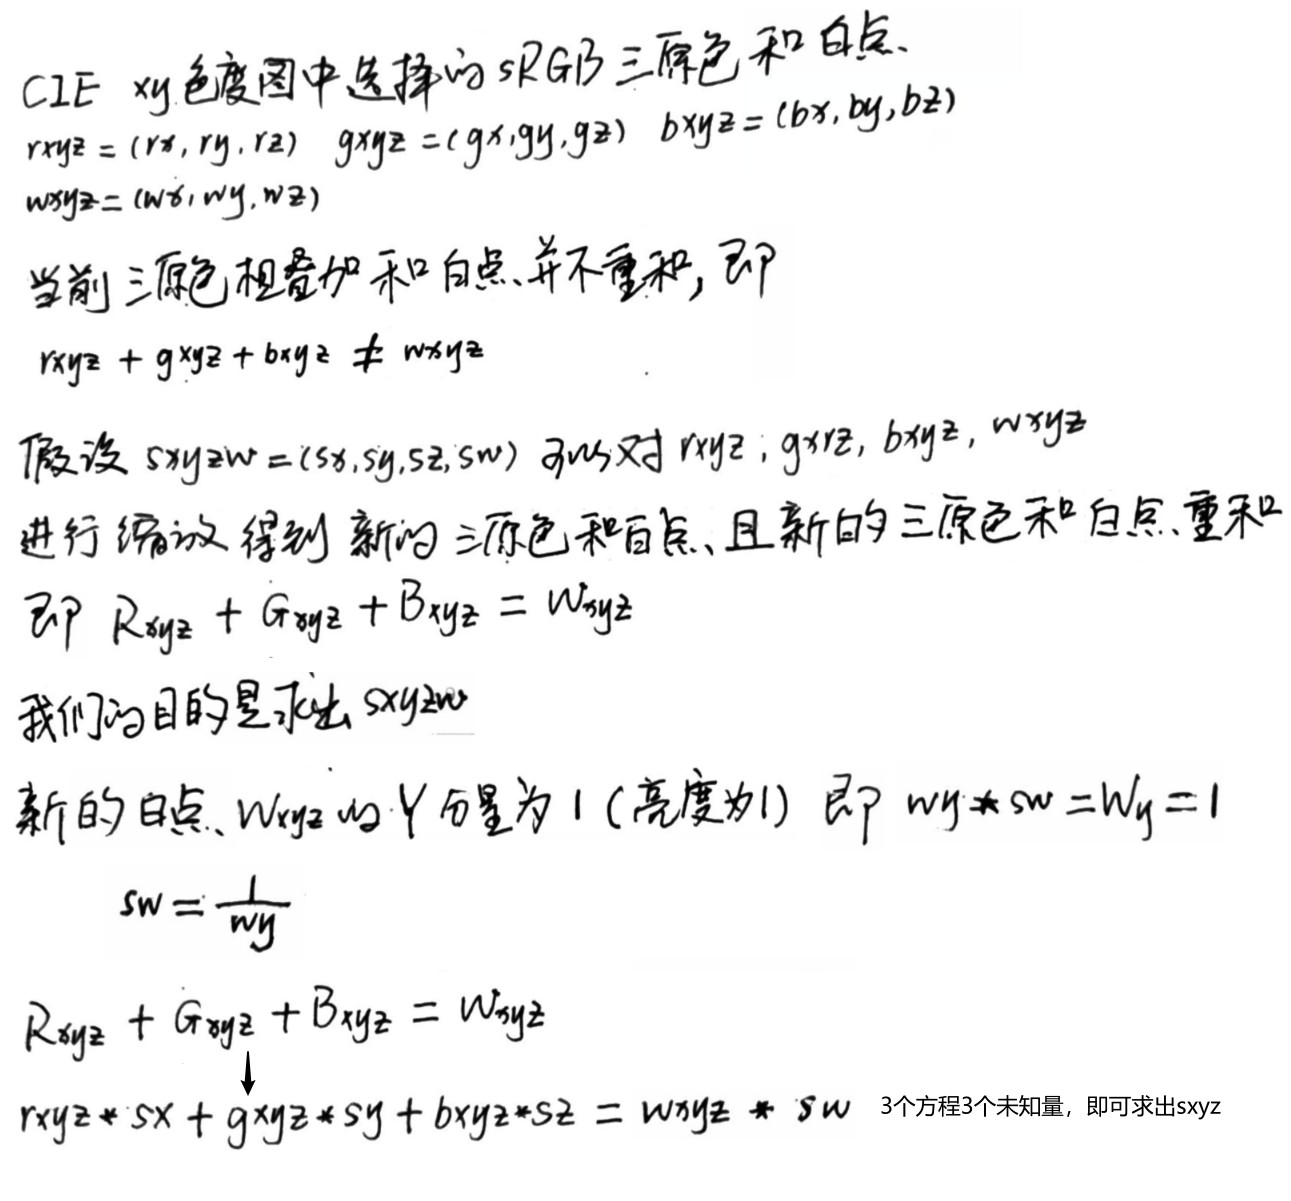 CIE xy色度图中选择的sRGB三原色和白点、
rxyz = (rx, ry, rz) gxyz = (gx, gy, gz) bxyz = (bx, by, bz)
wxyz = (wx, wy, wz)
当前三原色相叠加和白点、并不重和, 即
rxyz + gxyz + bxyz ≠ wxyz
假设 sxyzw = (sx, sy, sz, sw) 可以对 rxyz, gxyz, bxyz, wxyz
进行缩放得到新的三原色和百点、且新的三原色和白点、重和
即 Rxyz + Gxyz + Bxyz = Wxyz
我们的目的是求出 sxyzw
新的白点、Wxyz的Y分量为1(亮度为1) 即 wy * sw = Wy = 1
sw = 1/wy
Rxyz + Gxyz + Bxyz = Wxyz
↓
rxyz * sx + gxyz * sy + bxyz * sz = wxyz * sw 3个方程3个未知量，即可求出sxyz